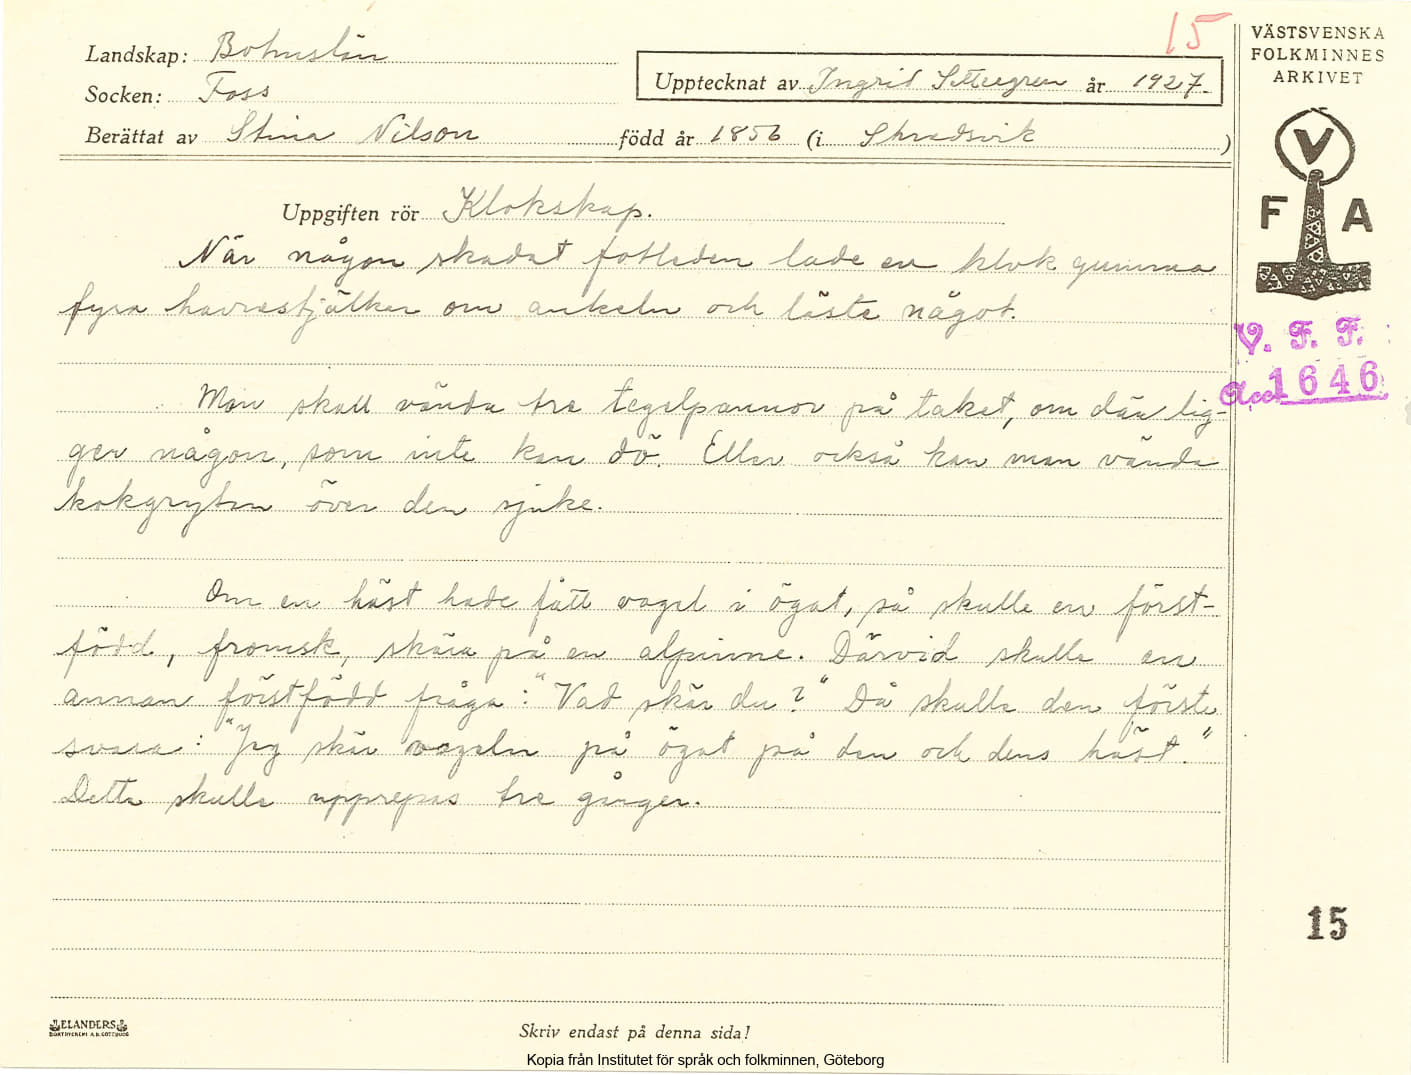 15
VÄSTSVENSKA
FOLKMINNES
ARKIVET
Landskap: Bohuslän
Socken: Foss
Upptecknat av Ingrid Settergren år 1927.
Berättat av Stina Nilson född år 1856 (i Skredsvik)
V
F A
Uppgiften rör Klokskap.
När någon skadat fotleden lade en klok gumma
fyra havrestjälkar om ankeln och läste något.
V. F. F.
Acc. 1646
Man skall vända tre tegelpannor på taket, om där lig-
ger någon, som inte kan dö. Eller också kan man vända
kokgrytan över den sjuke.
Om en häst hade fått vagel i ögat, så skulle en först-
född, fromsk, skära på en alpinne. Därvid skulle en
annan förstfödd fråga: "Vad skär du?" Då skulle den förste
svara: "Jag skär vageln på ögat på den och dens häst."
Detta skulle upprepas tre gånger.
15
ELANDERS
BOKTRYCKERI A.B. GÖTEBORG
Skriv endast på denna sida!
Kopia från Institutet för språk och folkminnen, Göteborg